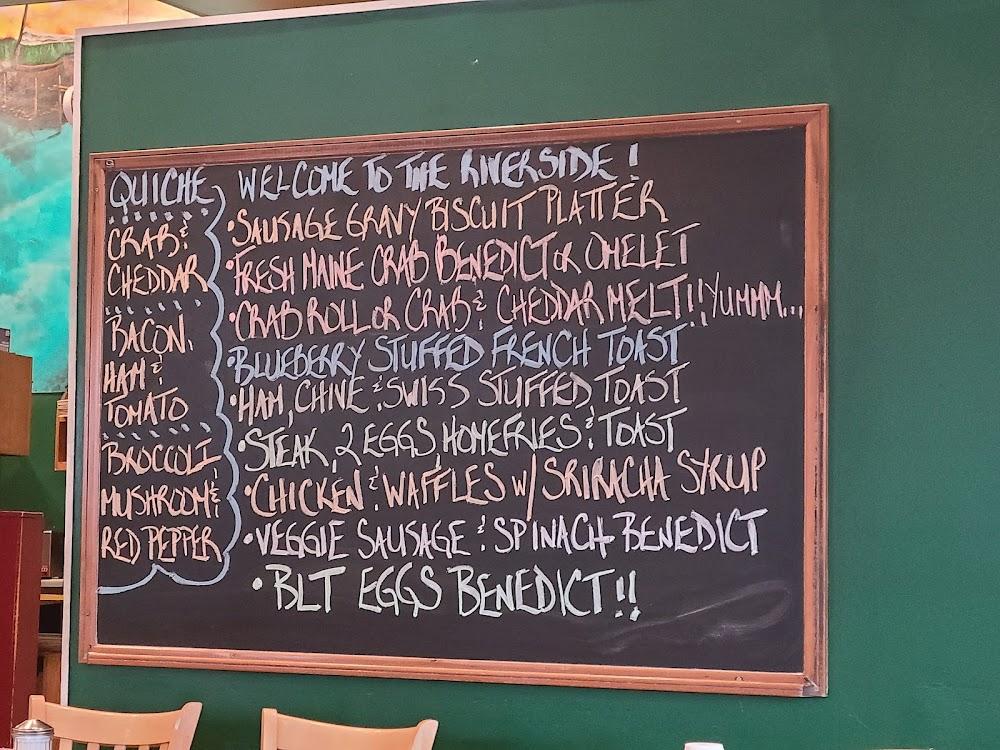 QUICHE
CRAB &
CHEDDAR
BACON,
HAM &
TOMATO
BROCCOLI,
MUSHROOM &
RED PEPPER
WELCOME TO THE RIVERSIDE!
•SAUSAGE GRAVY BISCUIT PLATTER
•FRESH MAINE CRAB BENEDICT OR OMELET
•CRAB ROLL OR CRAB & CHEDDAR MELT!! YUMMM...
•BLUEBERRY STUFFED FRENCH TOAST
•HAM, CHIVE & SWISS STUFFED TOAST
•STEAK, 2 EGGS, HOMEFRIES & TOAST
•CHICKEN & WAFFLES W/ SRIRACHA SYRUP
•VEGGIE SAUSAGE & SPINACH BENEDICT
•BLT EGGS BENEDICT!!